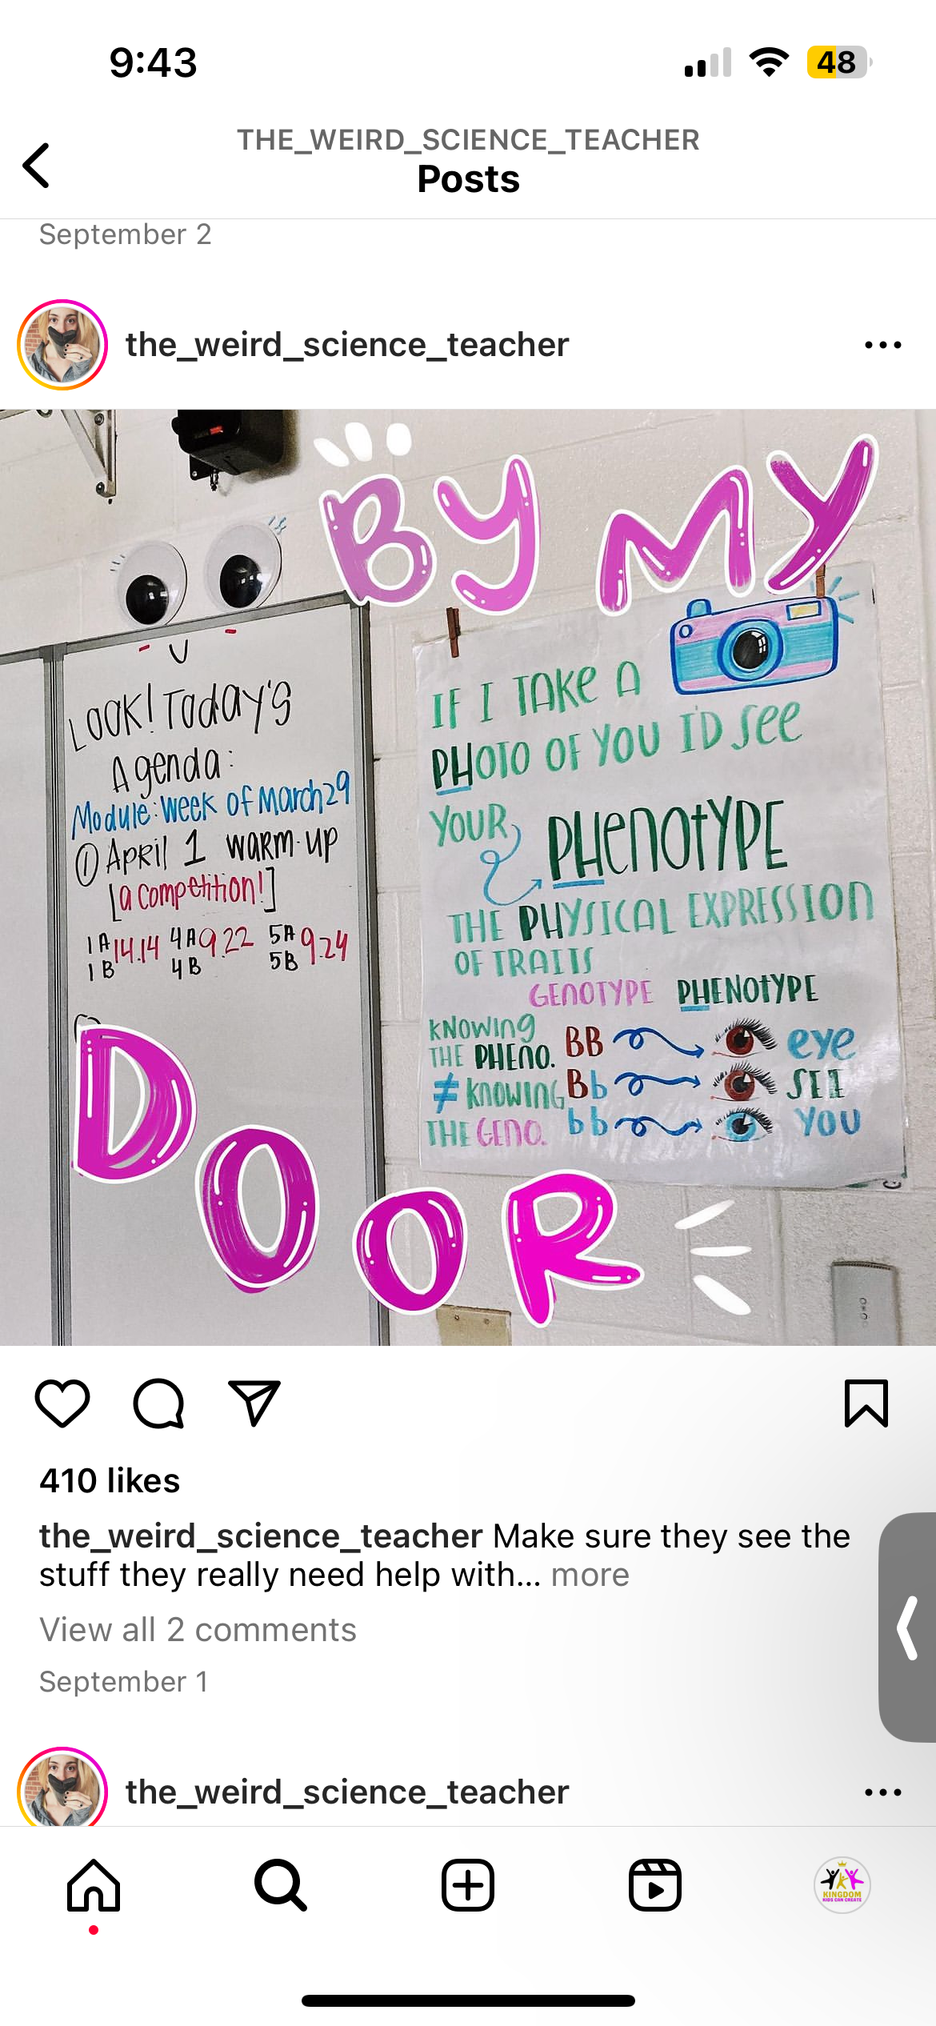 9:43
48
THE_WEIRD_SCIENCE_TEACHER
Posts
September 2
the_weird_science_teacher
BY MY
LOOK! Today's
Agenda:
Module: Week of March 29
① April 1 warm-up
[a competition!]
1A 14.14 4A 9.22 5A 9.24
1B 4B 5B
IF I TAKE A
PHOTO OF YOU I'D SEE
YOUR PHENOTYPE
THE PHYSICAL EXPRESSION
OF TRAITS
GENOTYPE PHENOTYPE
KNOWING
THE PHENO.
≠ KNOWING
THE GENO.
BB eye
Bb SEE
bb YOU
DOOR
410 likes
the_weird_science_teacher Make sure they see the
stuff they really need help with... more
View all 2 comments
September 1
the_weird_science_teacher
KINGDOM
KIDS CAN CREATE